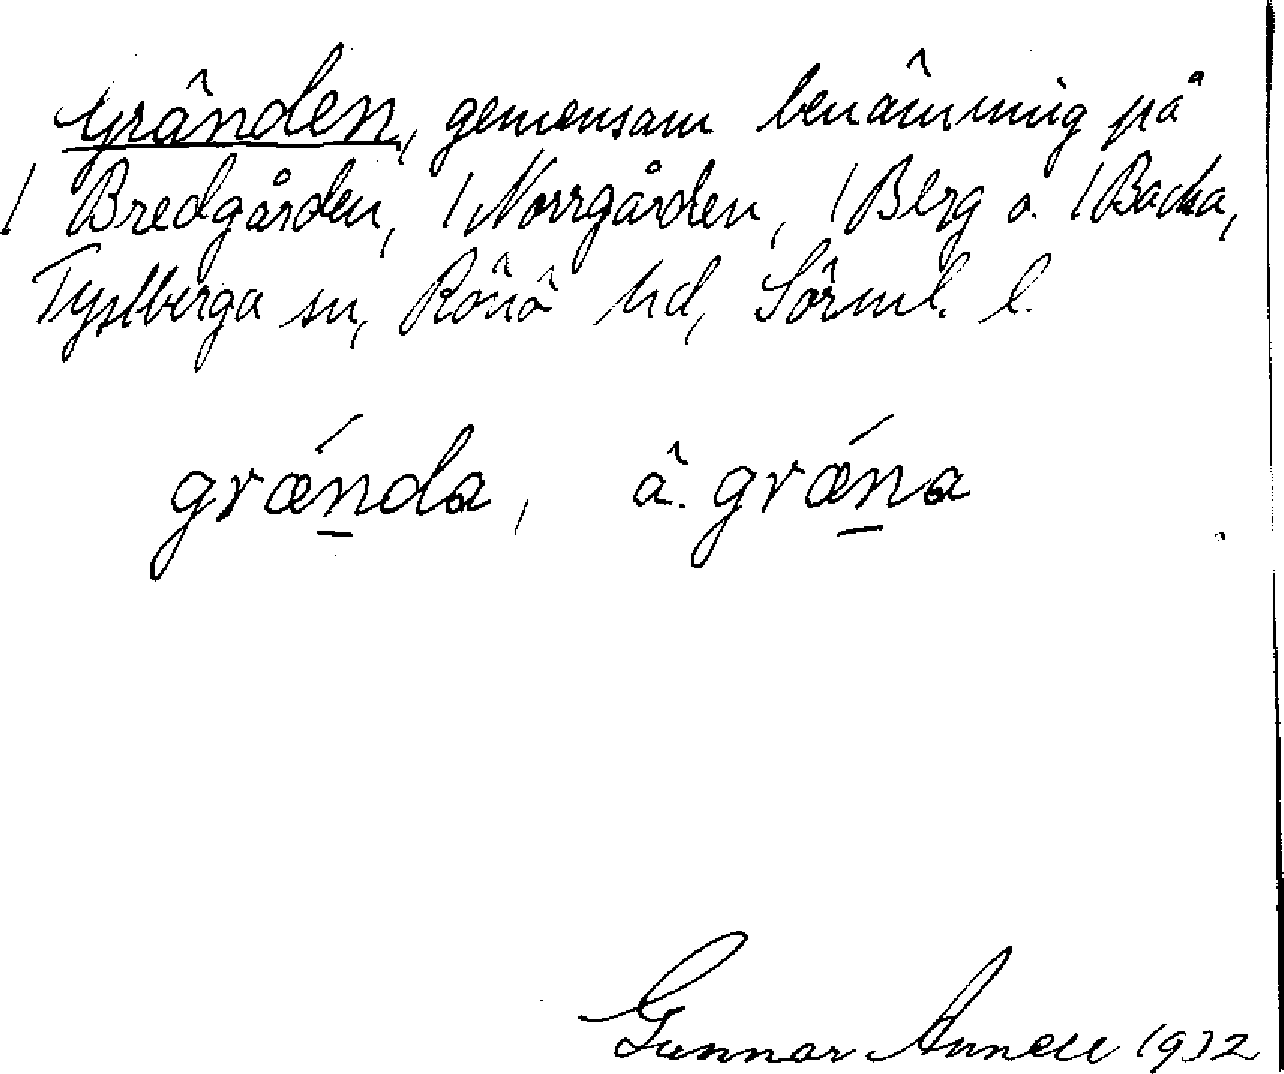 Gränden, gemensam benämning på
1 Bredgården, 1 Norrgården, 1 Berg o. 1 Backa,
Tystberga sn, Rönö hd, Sörml. l.
grænda, ä. græna
Gunnar Annell 1932